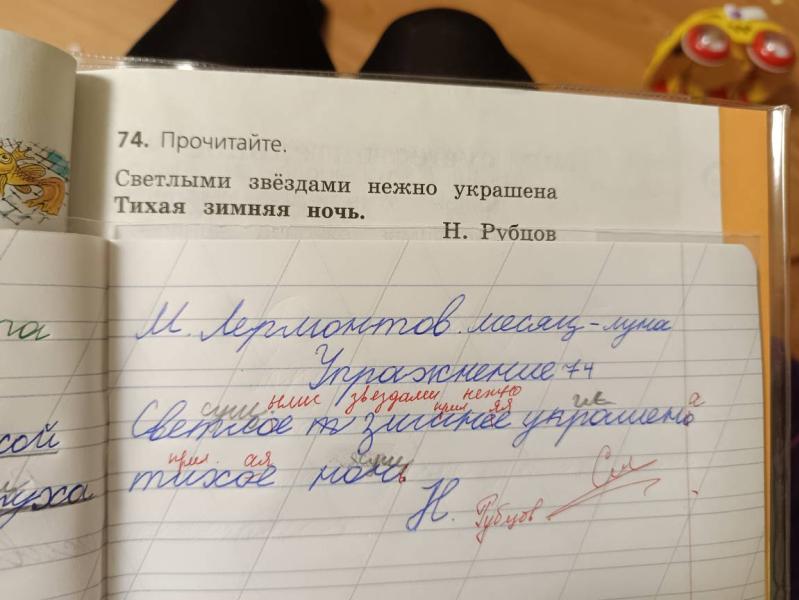 74. Прочитайте.
Светлыми звёздами нежно украшена
Тихая зимняя ночь.
Н. Рубцов
М. Лермонтов. месяц - луна
Упражнение 74
ыми звездами нежно
сущ. прил яя гл.
Светлое т зимнее украшено а
прил ая сущ
тихое ночь
Н. Рубцов См
та
сой
пуха